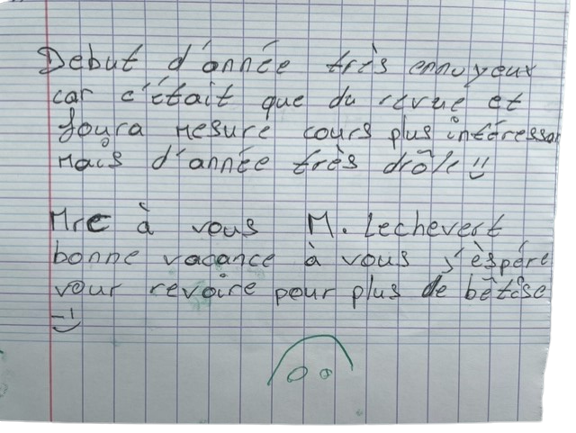 Debut d'année très ennuyeux
car c'était que du revue et
foura mesure cours plus intéressan
Mais d'année très drôle !!
Mrc à vous M. Lechevert
bonne vacance à vous j'èspére
vour revoire pour plus de bêtise
=)